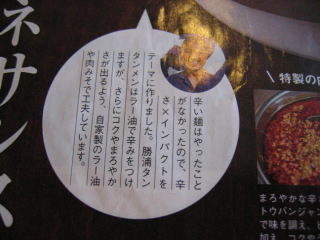 ネサンス
＼特製の
辛い麺はやったこと
がなかったので、辛
さ×インパクトを
テーマに作りました。勝浦タン
タンメンはラー油で辛みをつけ
ますが、さらにコクやまろやか
さが出るよう、自家製のラー油
や肉みそで工夫しています。
まろやかな辛
トウバンジャン
で味を調え、
加え、コクや